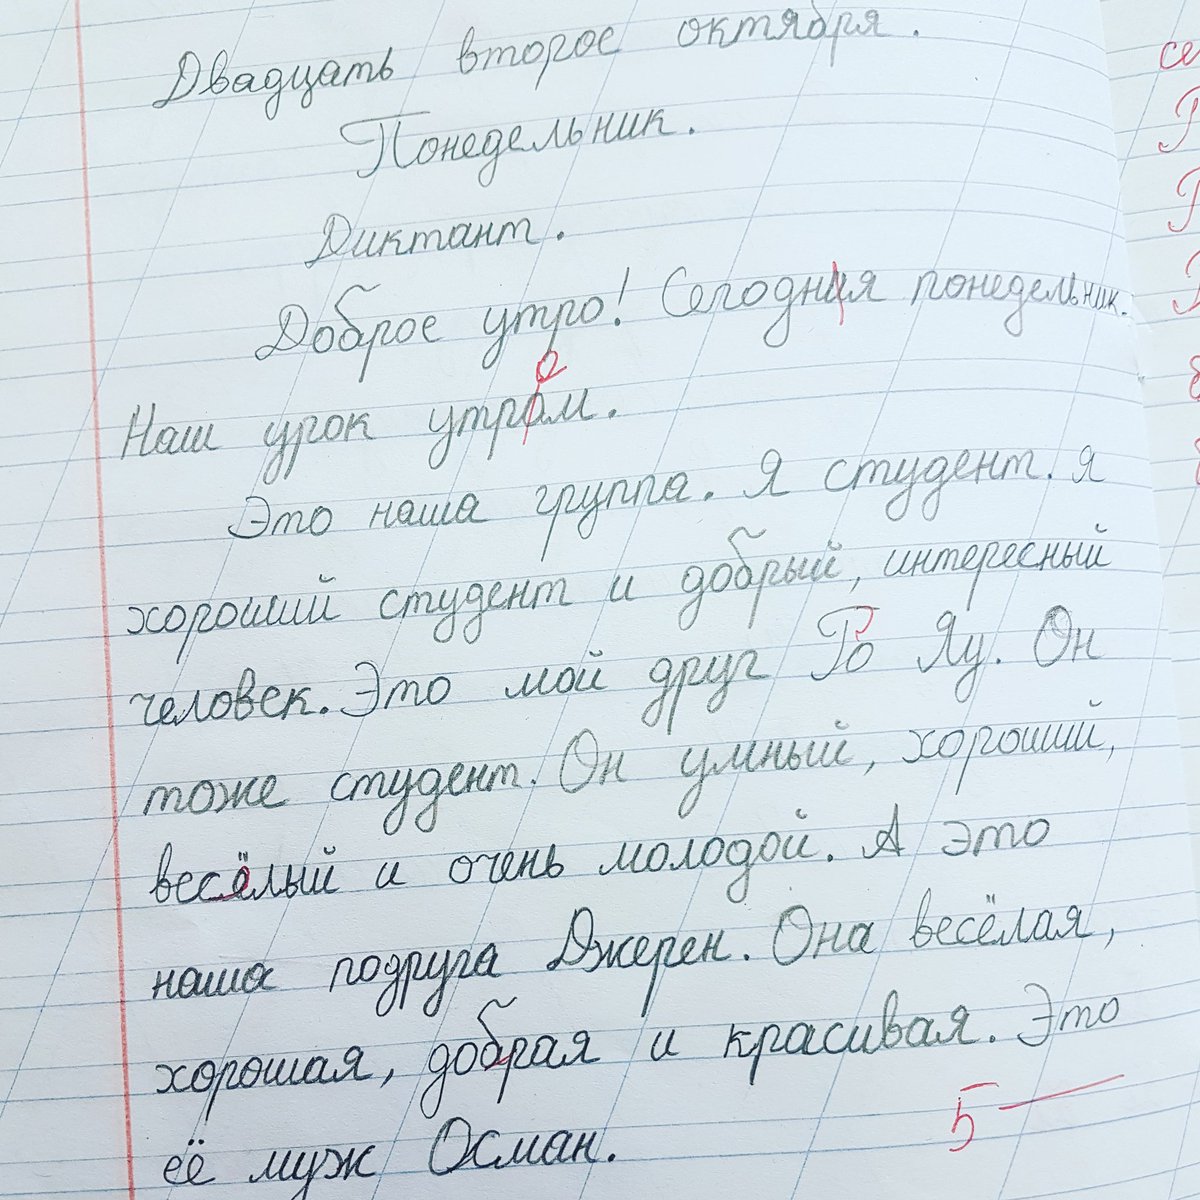 Двадцать второе октября.
Понедельник.
Диктант.
Доброе утро! Сегодня понедельник.
Наш урок утром.
Это наша группа. Я студент. Я
хороший студент и добрый, интересный
человек. Это мой друг Го Яу. Он
тоже студент. Он умный, хороший,
весёлый и очень молодой. А это
наша подруга Джерен. Она весёлая,
хорошая, добрая и красивая. Это
её муж Осман.
5-